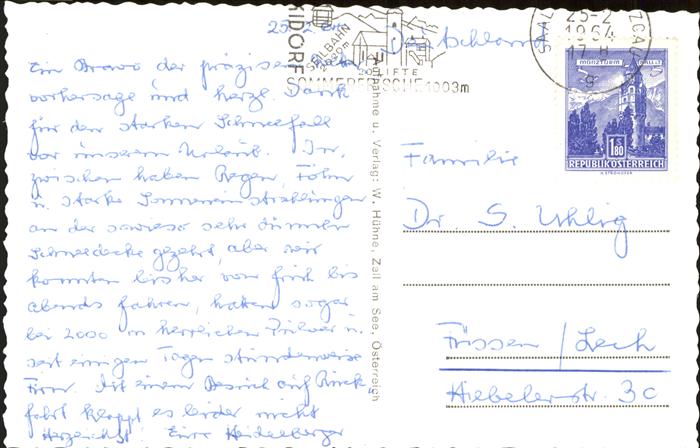 25.2.
Deutschland
Ein Bravo der präzisen
vorhersage und herzl. Dank
für den starken Schneefall
vor unserem Urlaub. In-
zwischen haben Regen, Föhn
u. starke Sonneneinstrahlungen
an der sowieso sehr dünnen
Schneedecke gezehrt, aber wir
konnten bisher von früh bis
abends fahren, haben sogar
bei 2000 m herrlichen Pulver u.
seit einigen Tagen stundenweise
Firn. Mit einem Besuch auf Rück-
fahrt klappt es leider nicht
Herzlichst Eure Heidelberger
KIDORF
SEILBAHN
20 LIFTE
SOMMERFRISCHE 1003m
SAAL
25-2
1964
17 H
MÜNZTURM HALL i.T.
1.80
REPUBLIK ÖSTERREICH
Aufnahme u. Verlag: W. Hühne, Zell am See, Österreich
Familie
Dr. S. Uhlig
Füssen / Lech
Hiebelerstr. 3c